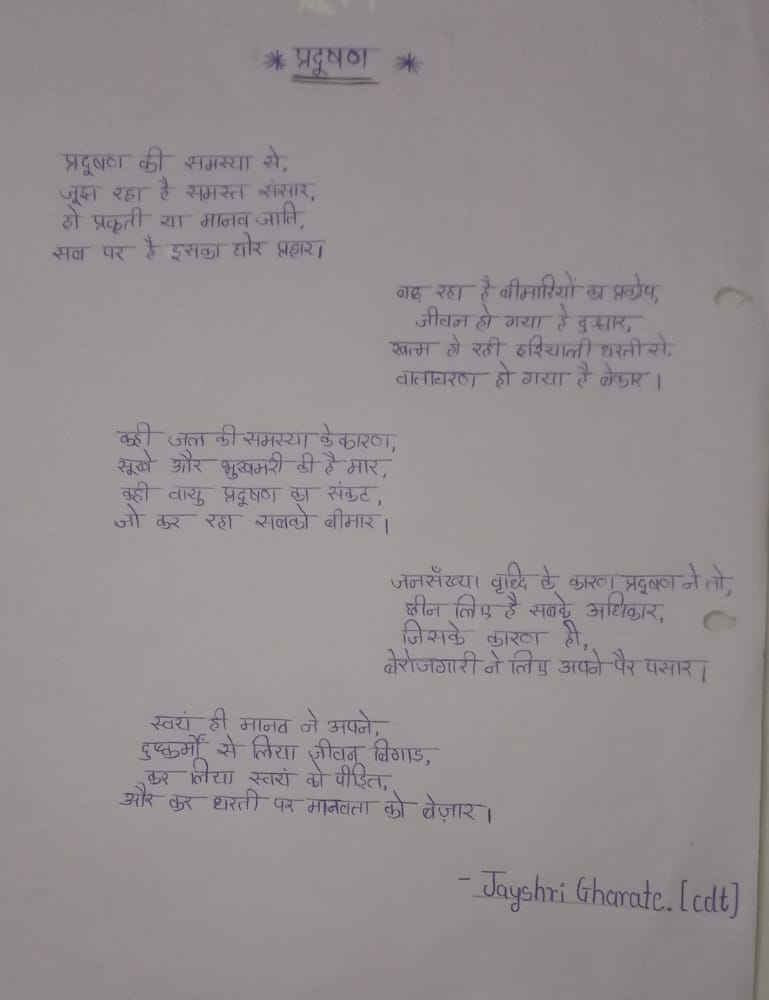 * प्रदूषण *
प्रदूषण की समस्या से,
जूझ रहा है समस्त संसार,
हो प्रकृती या मानव जाति,
सब पर है इसका घोर प्रहार।
बढ़ रहा है बीमारियों का प्रकोप,
जीवन हो गया है दुश्वार,
खत्म हो रही हरियाली धरती से,
वातावरण हो गया है बेकार।
कही जल की समस्या के कारण,
सूखे और भुखमरी की है मार,
कही वायु प्रदूषण का संकट,
जो कर रहा सबको बीमार।
जनसँख्या वृध्दि के कारण प्रदूषण ने तो,
छीन लिए है सबके अधिकार,
जिसके कारण ही,
बेरोजगारी ने लिए अपने पैर पसार।
स्वयं ही मानव ने अपने,
दुष्कर्मों से लिया जीवन बिगाड,
कर लिया स्वयं को पीड़ित,
और कर धरती पर मानवता को बेज़ार।
- Jayshri Gharate. [cdt]